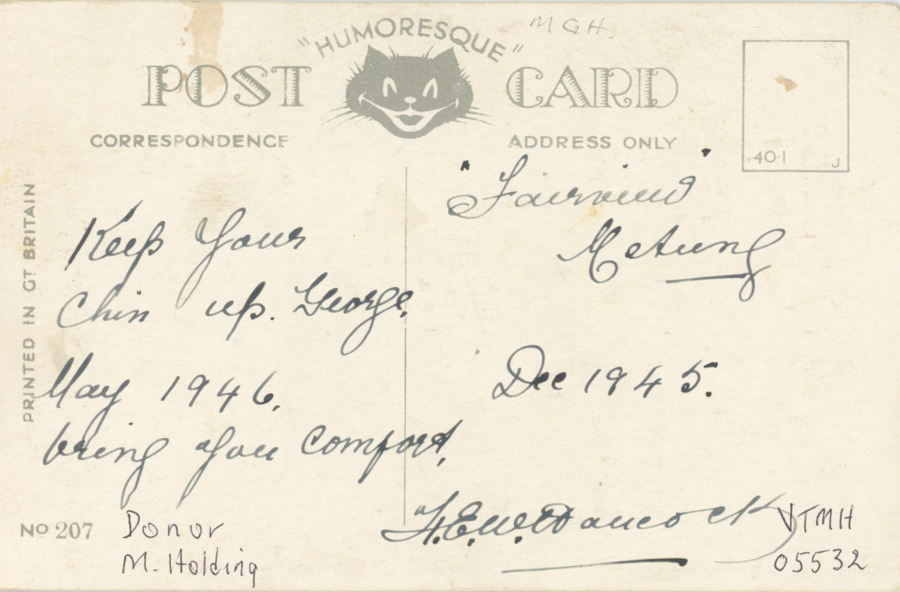 "HUMORESQUE"
MGH.
POST CARD
CORRESPONDENCE
ADDRESS ONLY
40-1 J
PRINTED IN GT BRITAIN
Keep Your
Chin up. George.
May 1946.
bring you Comfort.
"Fairview"
Metung
Dec 1945.
F.E.W. Hancock
No 207
Donor
M. Holding
VTMH
05532